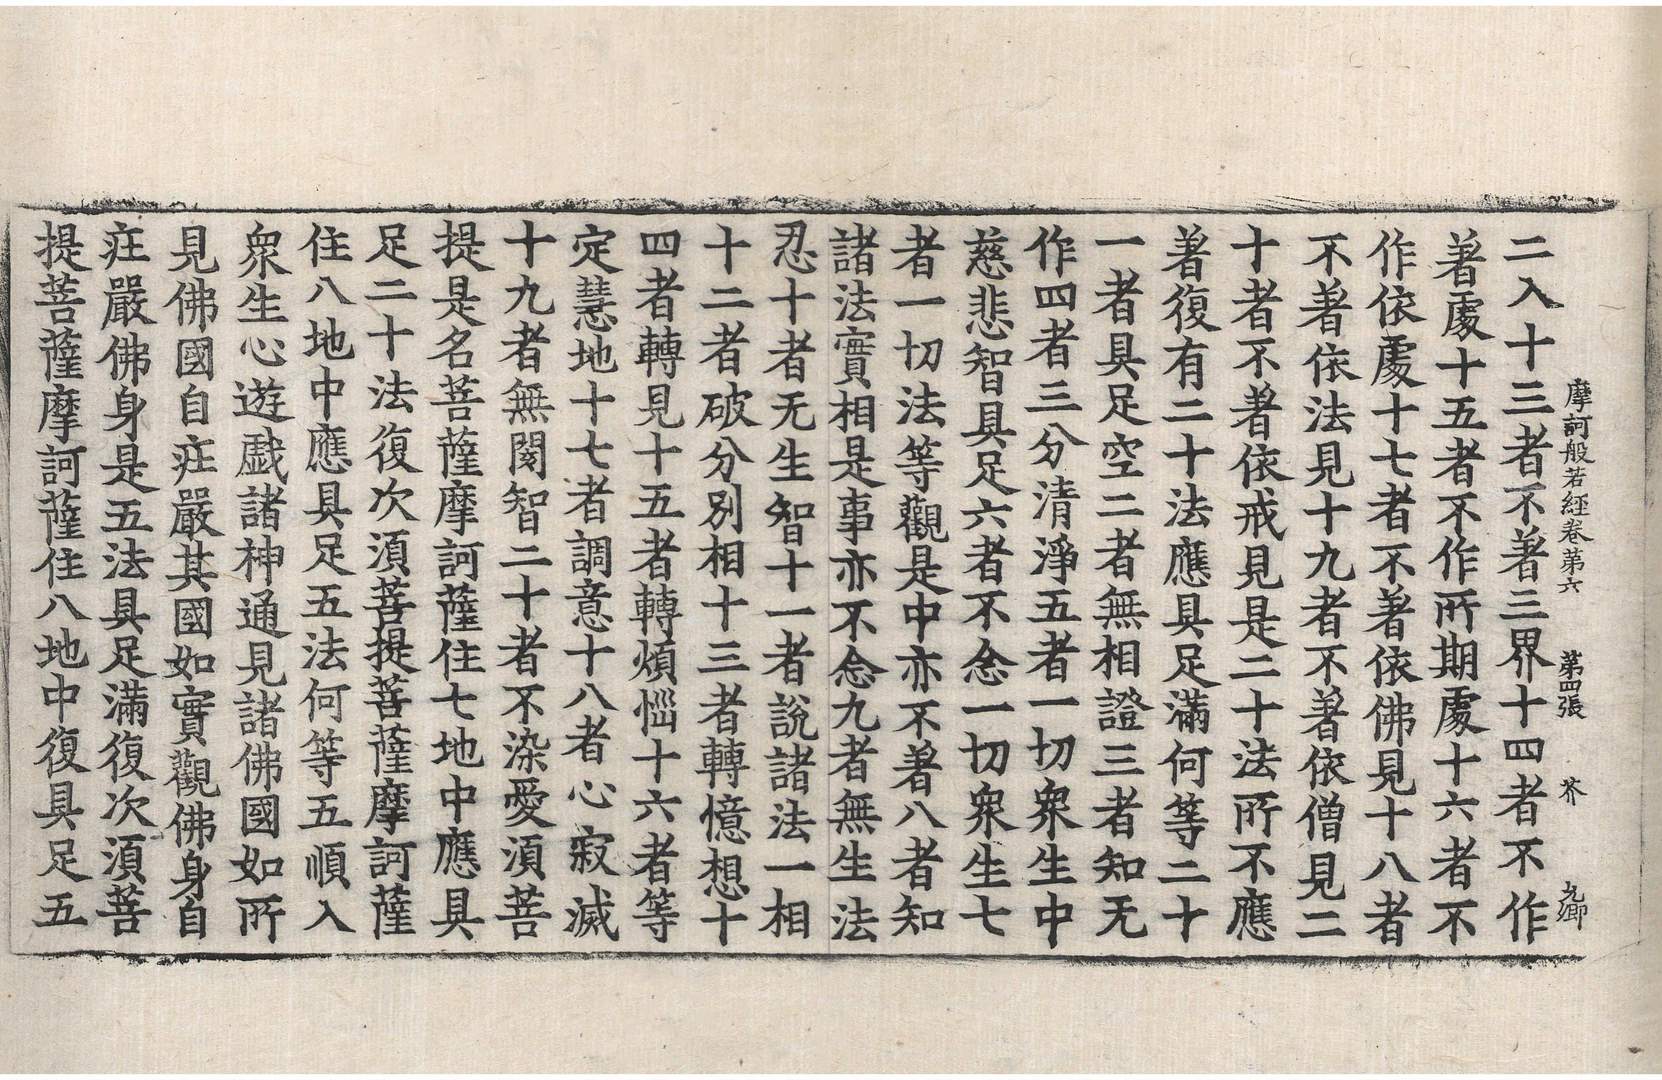 摩訶般若經卷第六 第四張 芥
二入十三者不著三界十四者不作
著處十五者不作所期處十六者不
作依處十七者不著依佛見十八者
不著依法見十九者不著依僧見二
十者不著依戒見是二十法所不應
著復有二十法應具足滿何等二十
一者具足空二者無相證三者知无
作四者三分清淨五者一切衆生中
慈悲智具足六者不念一切衆生七
者一切法等觀是中亦不著八者知
諸法實相是事亦不念九者無生法
忍十者无生智十一者說諸法一相
十二者破分別相十三者轉憶想十
四者轉見十五者轉煩惱十六者等
定慧地十七者調意十八者心寂滅
十九者無閡智二十者不染愛湏菩
提是名菩薩摩訶薩住七地中應具
足二十法復次湏菩提菩薩摩訶薩
住八地中應具足五法何等五順入
衆生心遊戲諸神通見諸佛國如所
見佛國自庄嚴其國如實觀佛身自
庄嚴佛身是五法具足滿復次湏菩
提菩薩摩訶薩住八地中復具足五